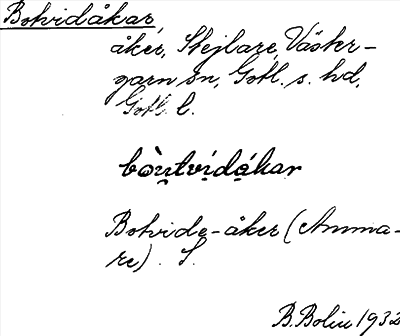 Botvidåkar,
åker, Stejlare, Väster-
garn sn, Gotl. s. hd,
Gotl. l.
bòu̯tvídákar
Botvide-åker (Amma-
re). S.
B. Bolin 1932